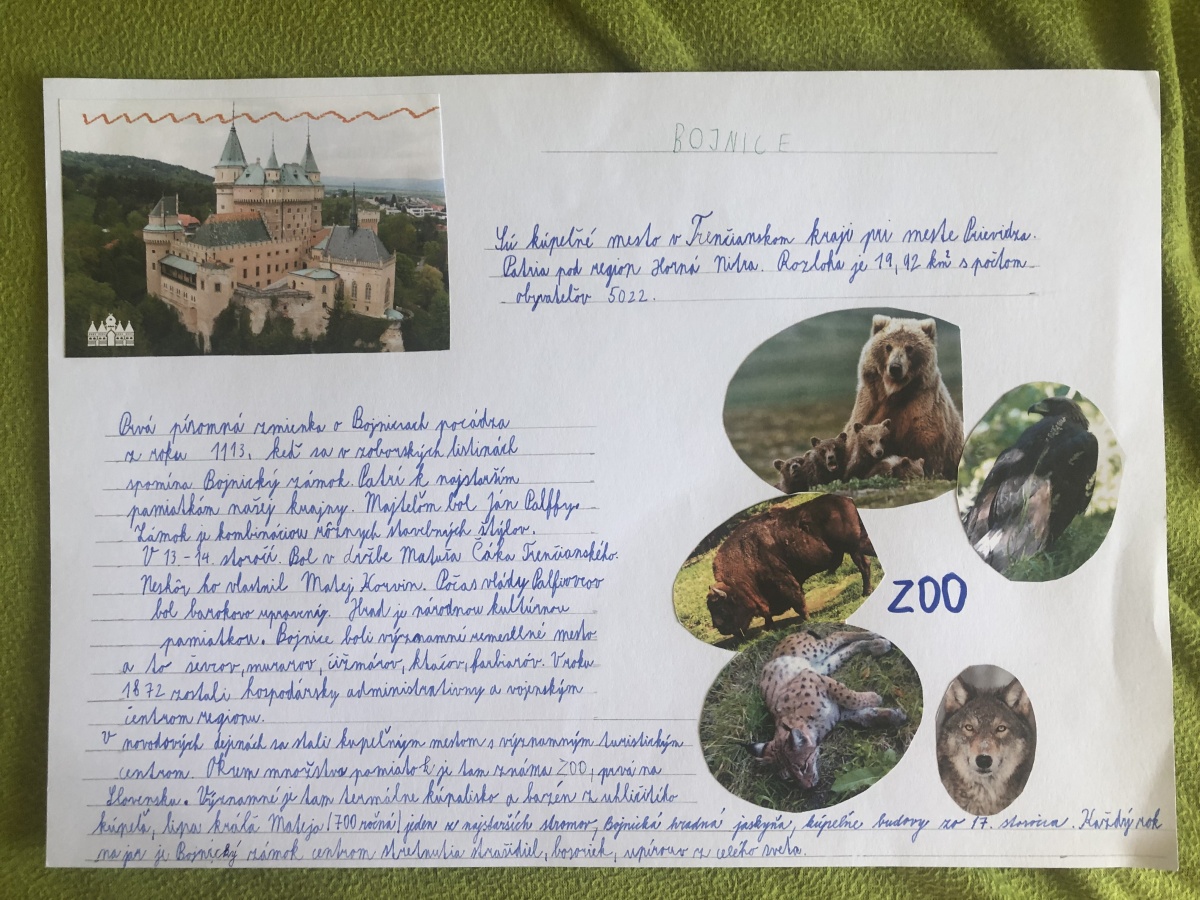 BOJNICE
Sú kúpeľné mesto v Trenčianskom kraji pri meste Prievidza.
Patria pod region Horná Nitra. Rozloha je 19,92 km² s počtom
obyvateľov 5022.
Prvá písomná zmienka o Bojniciach pocádza
z roku 1113, keď sa v zoborských listinách
spomína Bojnický zámok. Patrí k najstarším
pamiatkam našej krajny. Majteľom bol Ján Palffy.
Zámok je kombináciou rôznych stavebných štýlov.
V 13-14. storočí. Bol v držbe Matuša Čáka Trenčianského.
Neskôr ho vlastnil Matej Korvin. Počas vlády Palfiovcov
bol barokovo upravený. Hrad je národnou kultúrnou
pamiatkou. Bojnice boli významné remeselné mesto
a to ševcov, murarov, čižmárov, ktačov, farbiarov. V roku
1872 zostali hospodársky administratívny a vojenským
centrom regionu.
V novodových dejinách sa stali kupeľným mestom s významným turistickým
centrom. Okrem množstva pamiatok je tam známa ZOO, prvá na
Slovensku. Významné je tam termálne kúpalisko a bazén z uhličitého
kúpeľa, lipa kráľa Mateja (700 ročná) jeden z najstarších stromov, Bojnická hradná jaskyňa, kúpeľne budovy zo 17. storočia. Každý rok
na jar je Bojnický zámok centrom stretnutia strašidiel, bosoriek, upírov z celého sveta.
ZOO